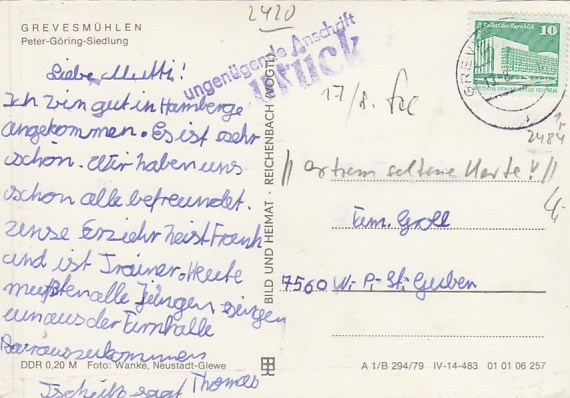 2420
GREVESMÜHLEN
Peter-Göring-Siedlung
ungenügende Anschrift
zurück
P. Palast der Republik 10
GREVE
13.8.
17/8.
2484
Liebe Mutti!
Ich bin gut in Hamberge
angekommen. Es ist sehr
schön. Wir haben uns
schon alle befreundet.
unse Erziehr heist Frank
und ist Trainer. Heute
mußten alle Jungen singen
um aus der Turnhalle
Tschüß sagt Thomas
// extrem seltene Karte! //
Fam. Groll
7560 W.-P.-St. Guben
BILD UND HEIMAT · REICHENBACH (VOGTL)
DDR 0,20 M Foto: Wanke, Neustadt-Glewe
A 1/B 294/79 IV-14-483 01 01 06 257